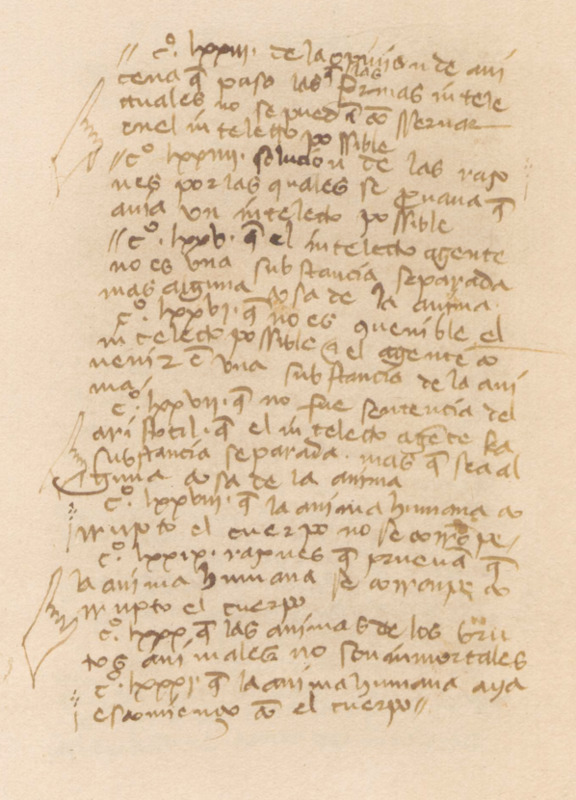 // cº. lxxiii. de la opinion de avi
cena q̃ puso las q̃ las formas intele
ctuales no se pued̃ a cõ sservar
enel intelecto possible
// cº lxxiiii. solucion de las razo
nes por las quales se provava q̃
avia un intelecto possible
// cº. lxxv. q̃ el intelecto agente
no es una substancia separada
mas alguna cosa de la anima.
cº. lxxvi. q̃ no es quenible el
intelecto possible q̃ el agente co
venir ẽ una substancia de la ani
ma/
cº. lxxvii. q̃ no fue sentencia del
aristotil. q̃ el intelecto agẽte sea
substancia separada. mas q̃ sea al
guna cosa de la anima
cº. lxxviii. q̃ la anima humana co
rrupto el cuerpo no se corrõpe/
cº. lxxix. razones q̃ pruevã q̃
la anima humana se corronpe co
rrupto el cuerpo
cº. lxxx. q̃ las animas de los bru
tos animales no son inmortales
cº. lxxxi. q̃ la anima humana aya
escomienço cõ el cuerpo //